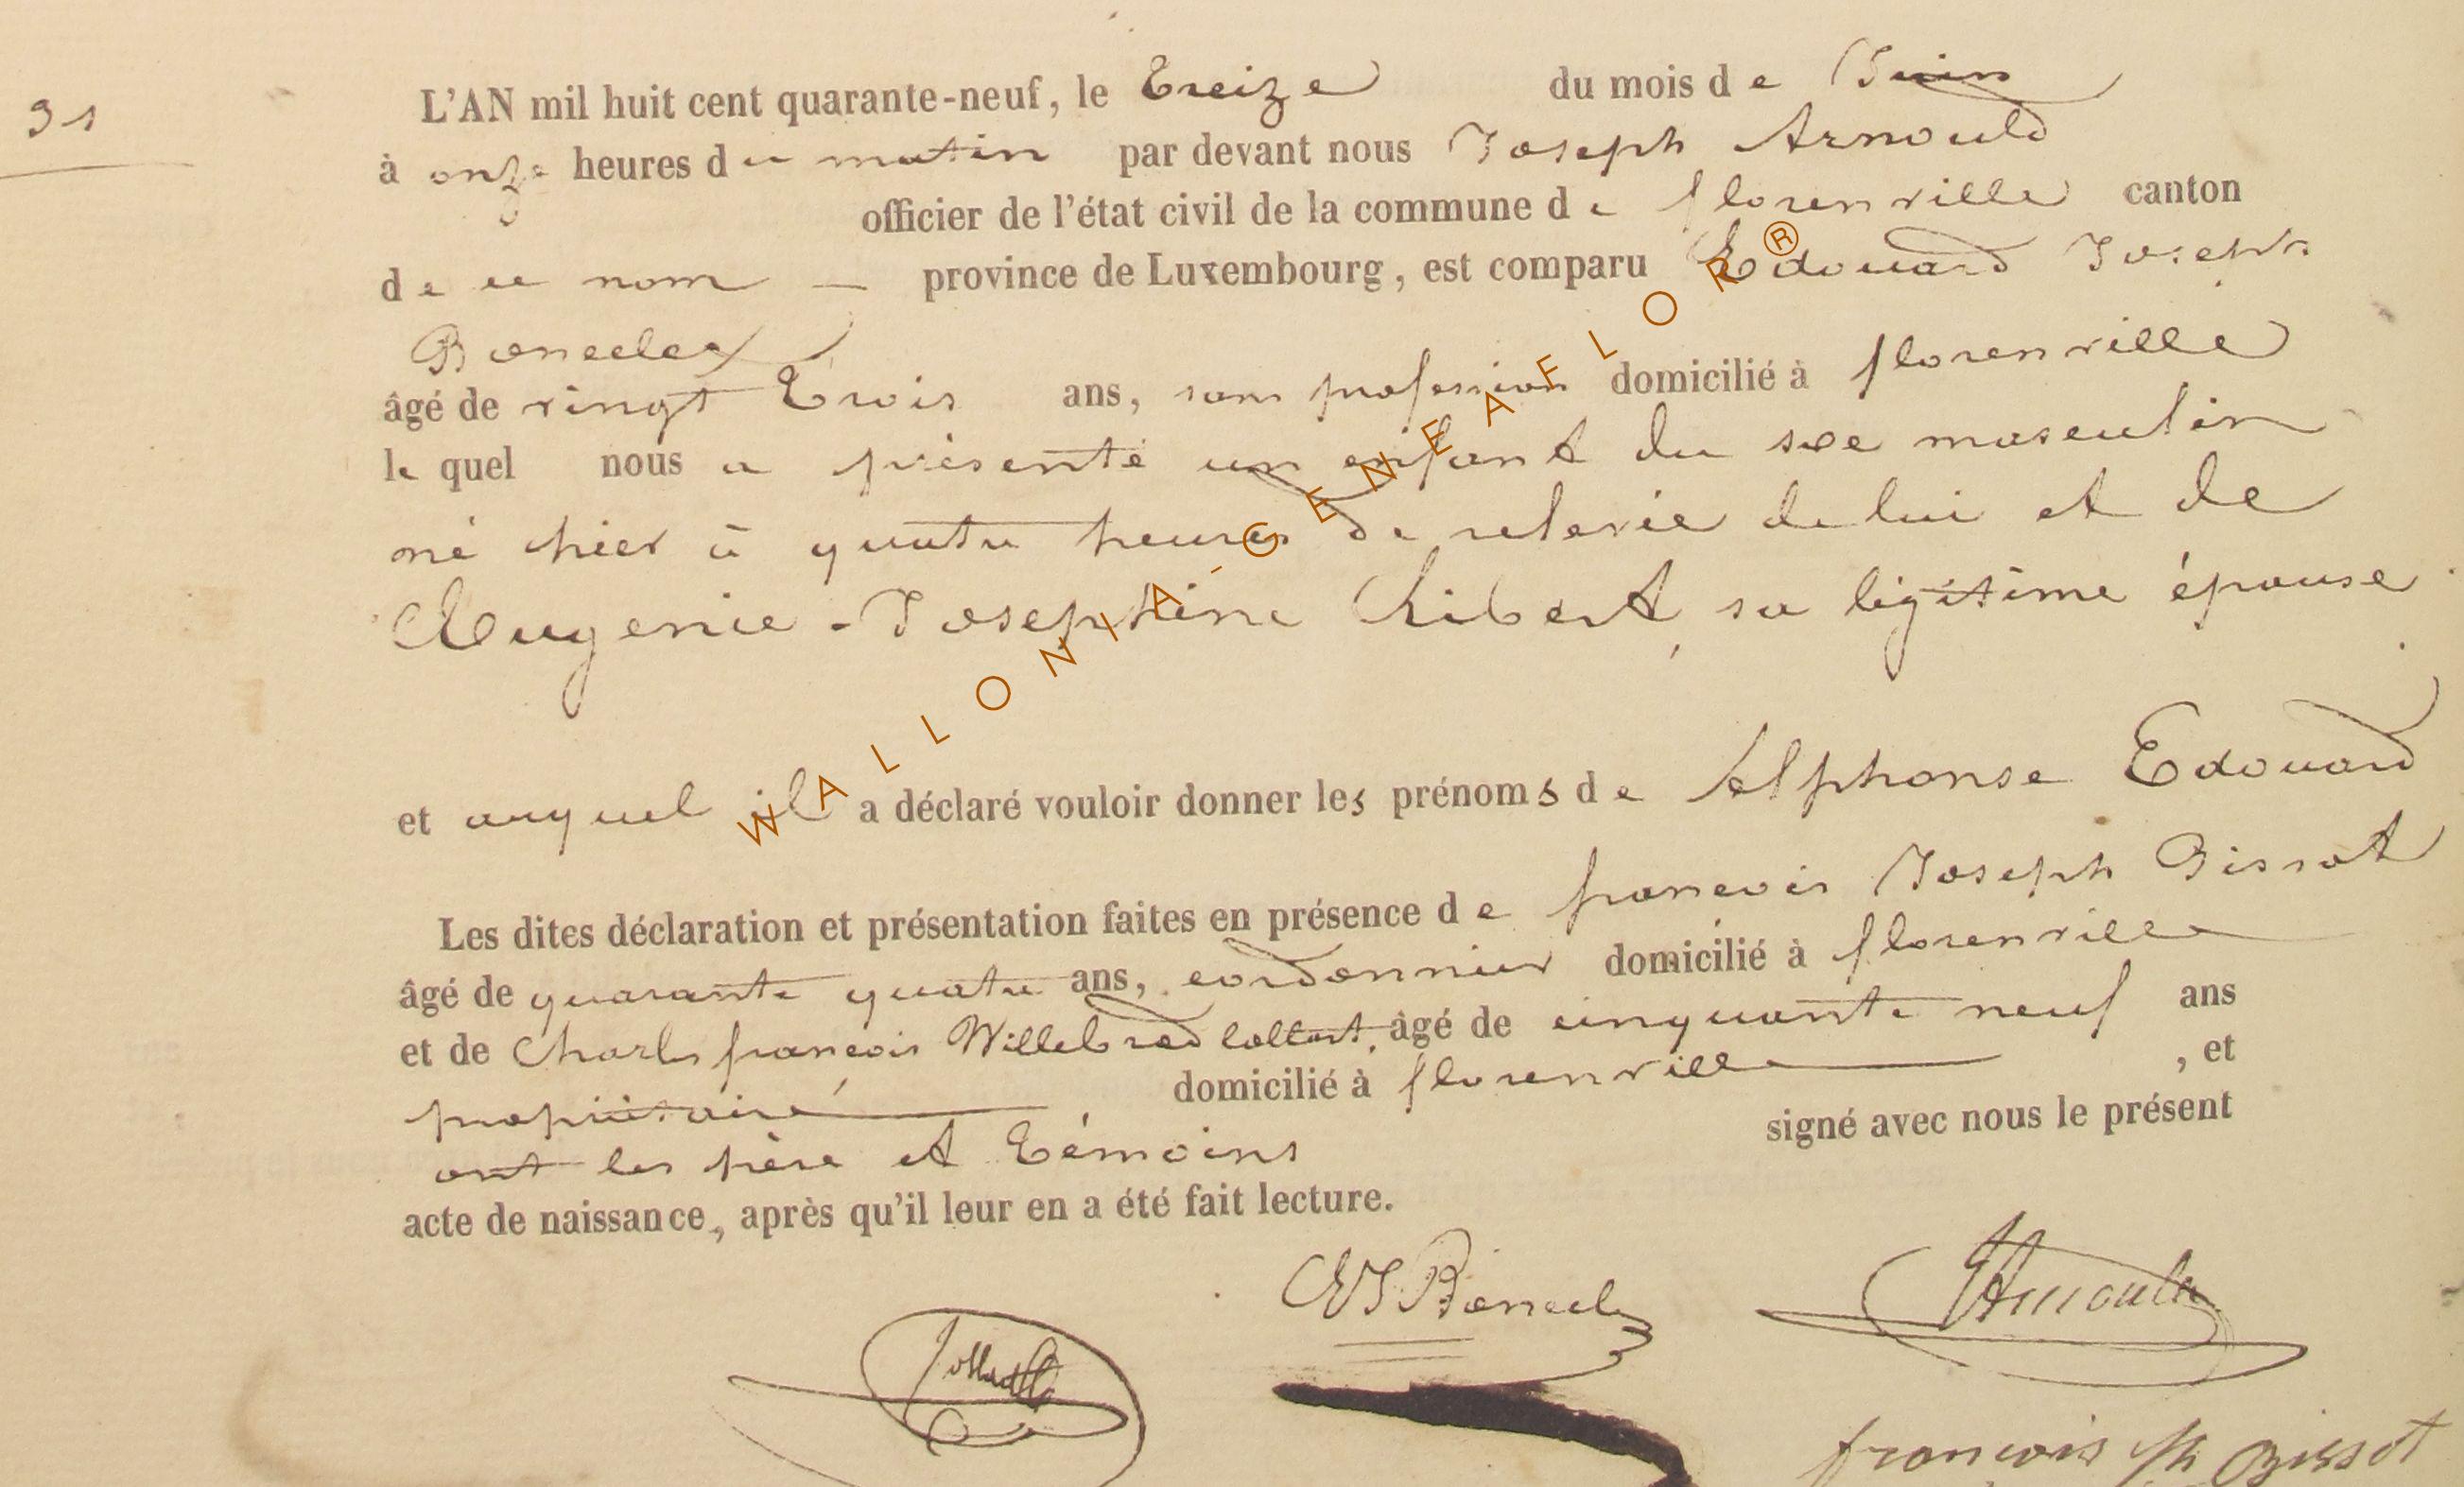 31
L'AN mil huit cent quarante-neuf, le treize du mois de Juin
à onze heures du matin par devant nous Joseph Arnould
officier de l'état civil de la commune de florenville canton
de ce nom — province de Luxembourg, est comparu Edouard Joseph
âgé de vingt trois ans, sans profession domicilié à florenville
le quel nous a présenté un enfant du sexe masculin
né hier à quatre heures de relevée de lui et de
Eugenie-Josephine Libert, sa légitime épouse
et auquel il a déclaré vouloir donner les prénoms de Alphonse Edouard
Les dites déclaration et présentation faites en présence de francois Joseph Gissot
âgé de quarante quatre ans, cordonnier domicilié à florenville
et de Charles francois Willebrod âgé de cinquante neuf ans
propriétaire domicilié à florenville , et
ont les père et témoins signé avec nous le présent
acte de naissance, après qu'il leur en a été fait lecture.
JArnould
francois Jh Gissot
WALLONIA-GENEAFLOR®